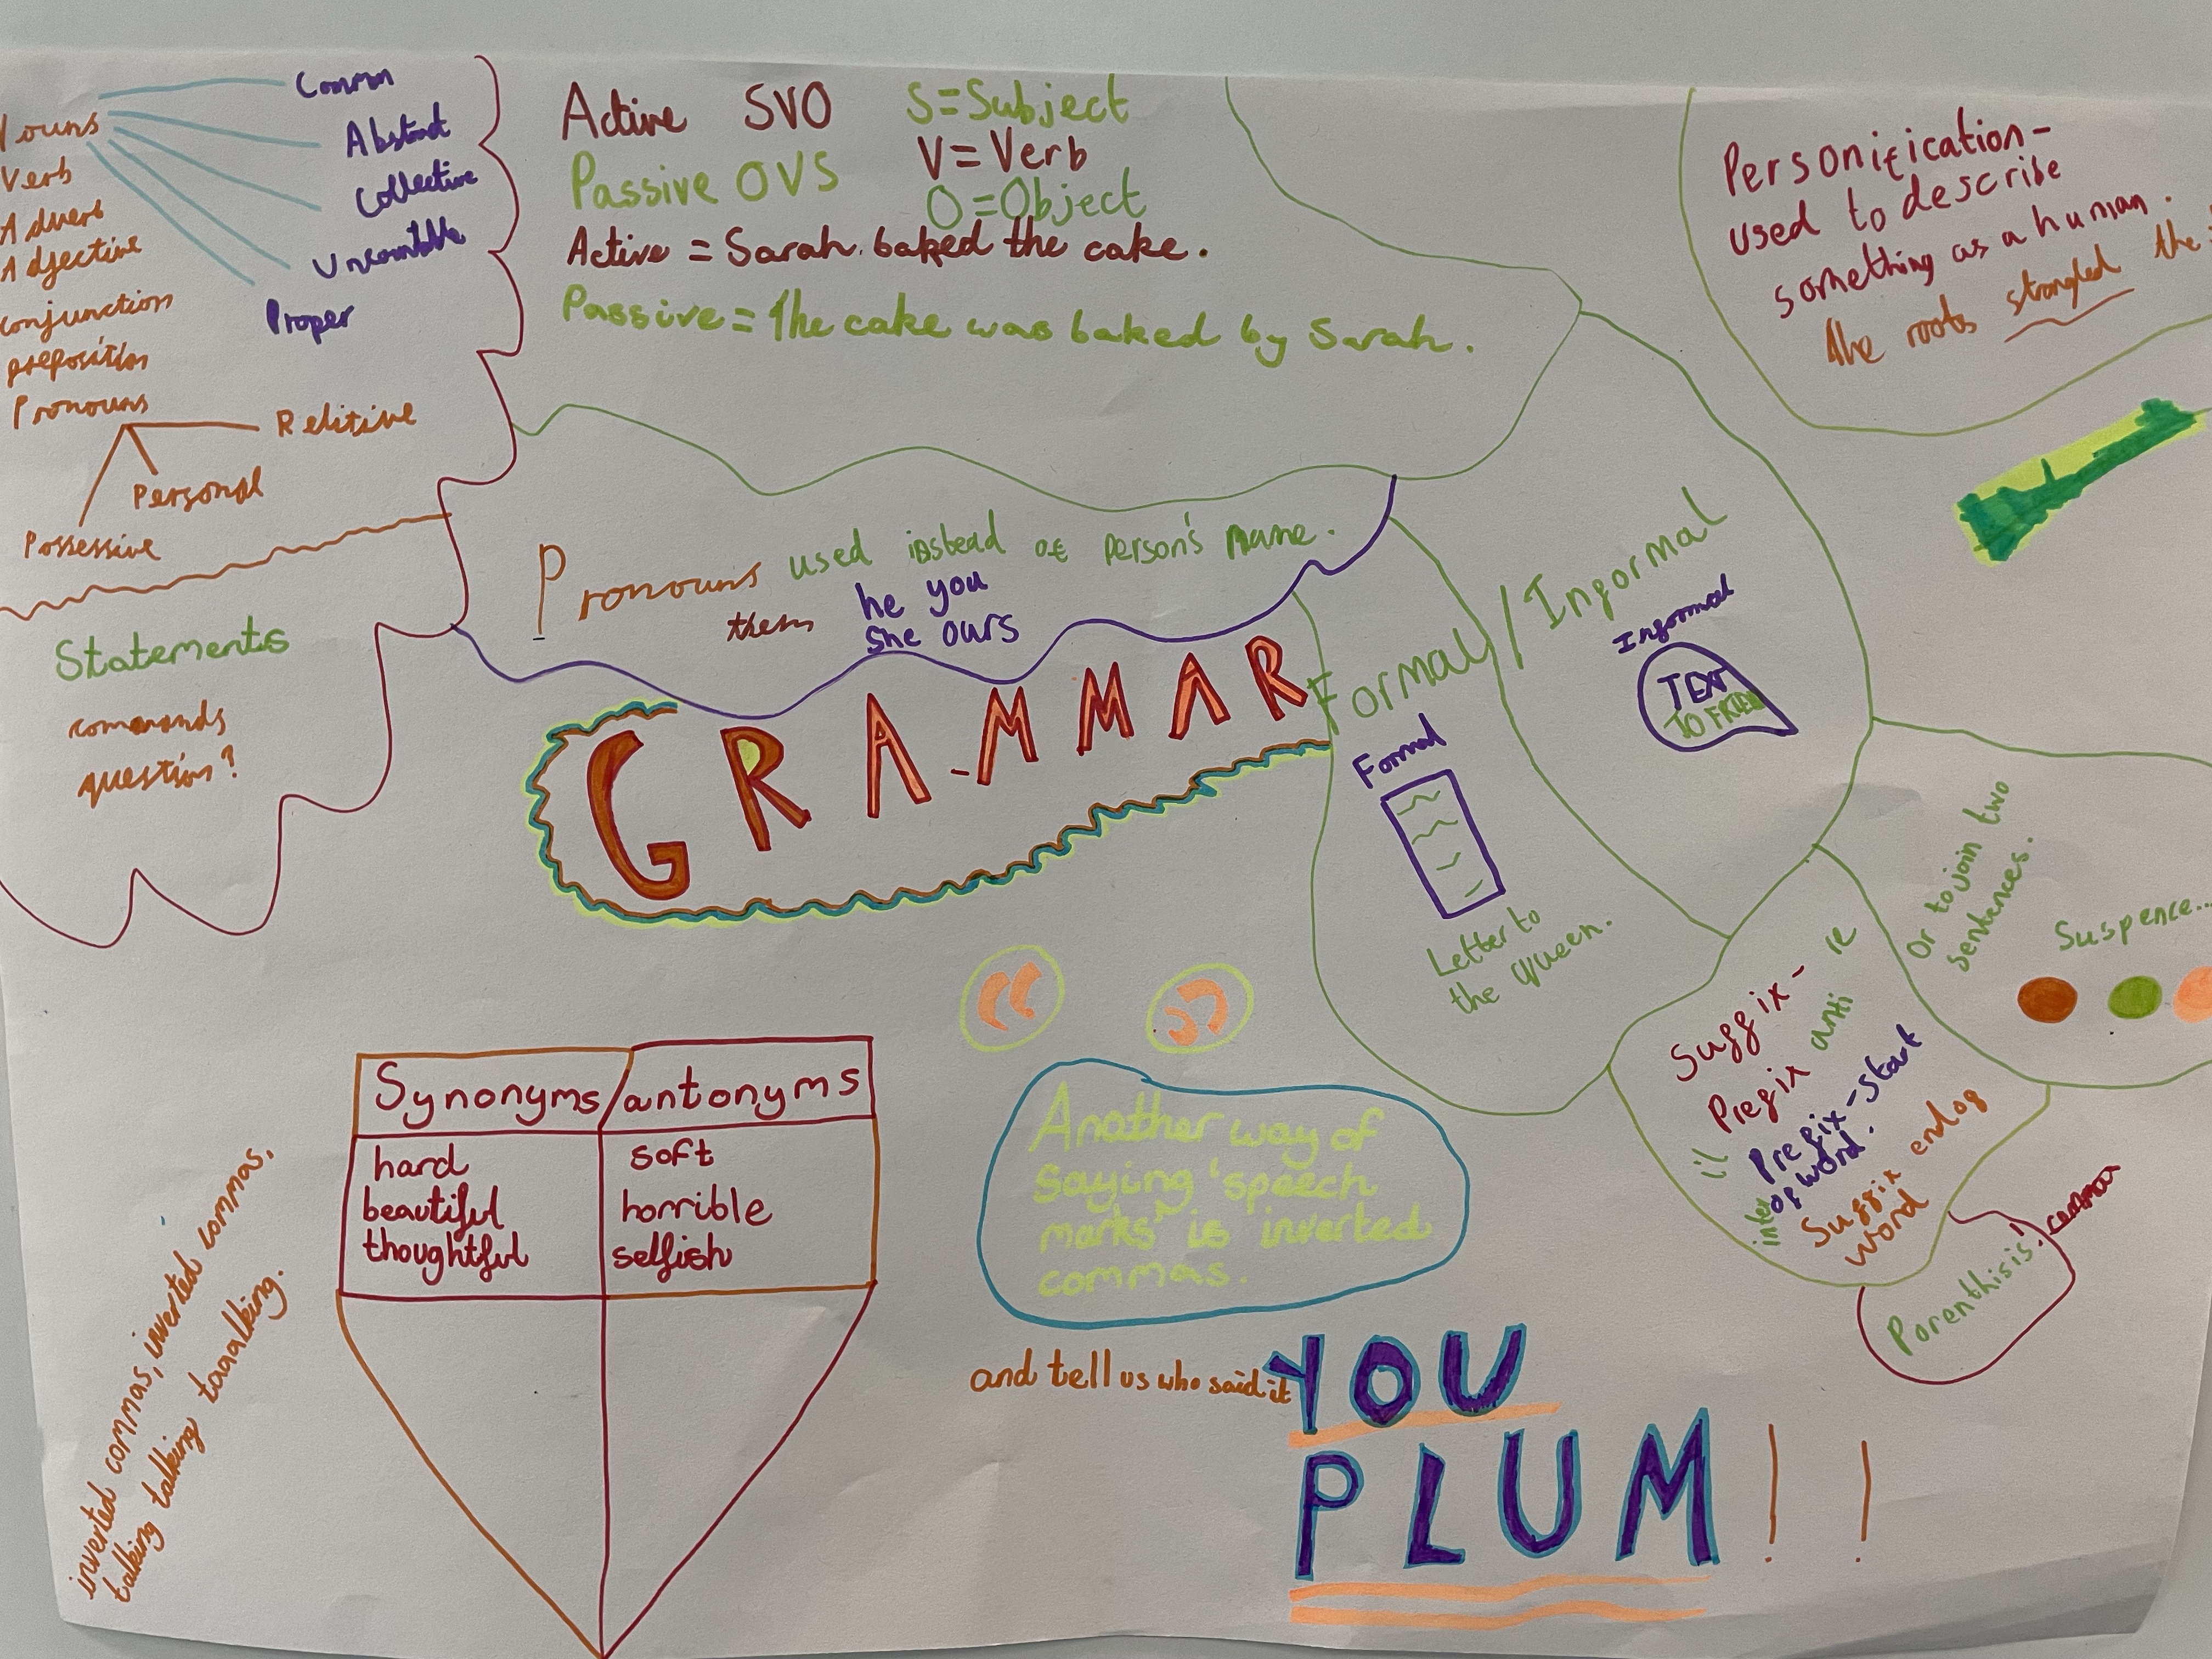 Nouns
Common
Abstract
Collective
Uncountable
Proper
Verb
Adverb
Adjective
conjunction
preposition
Pronouns
Relitive
Personal
Possessive
Statements
commands
question?
Active SVO
Passive OVS
S=Subject
V=Verb
O=Object
Active = Sarah baked the cake.
Passive = The cake was baked by Sarah.
Personification-
used to describe
something as a human.
The roots strangled the
Pronouns used instead of person's name.
them he you
she ours
GRAMMAR
Formal/Informal
Informal
TEXT
TO FRIEND
Formal
Letter to
the queen.
Or to join two
sentences.
Suspence...
Suffix- re
Prefix anti
il Prefix-start
inter of word.
Suffix end of
word
Parenthisis, comma
“ ”
Another way of
saying 'speech
marks' is inverted
commas.
and tell us who said it
YOU
PLUM!!
Synonyms/antonyms
hard soft
beautiful horrible
thoughtful selfish
inverted commas, inverted commas,
talking talking taaalking.